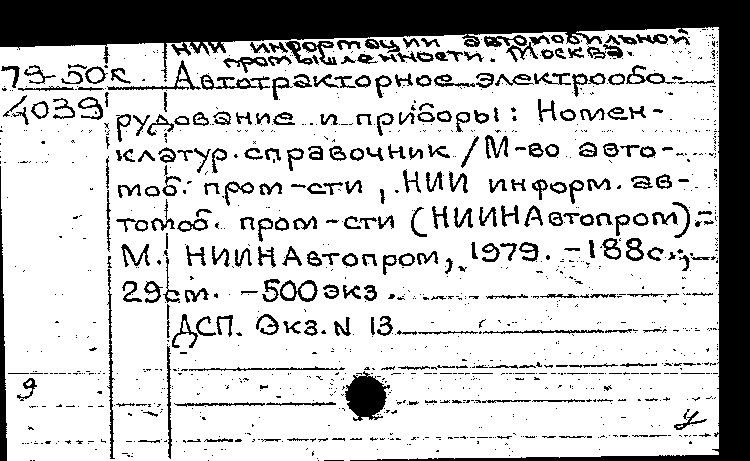 НИИ информации автомобильной
промышленности. Москва.
79-50к Автотракторное электрообо-
4039 рудование и приборы: Номен-
клатур. справочник / М-во авто-
моб. пром-сти, НИИ информ. ав-
томоб. пром-сти (НИИНАвтопром).-
М.: НИИНАвтопром, 1979. -188с.;
29см. -500экз.
ДСП. Экз. N 13
9
У